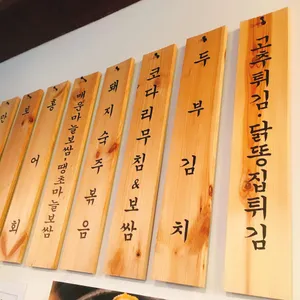 홍어회
매운마늘보쌈·땡초마늘보쌈
돼지숙주볶음
코다리무침&보쌈
두부김치
고추튀김·닭똥집튀김